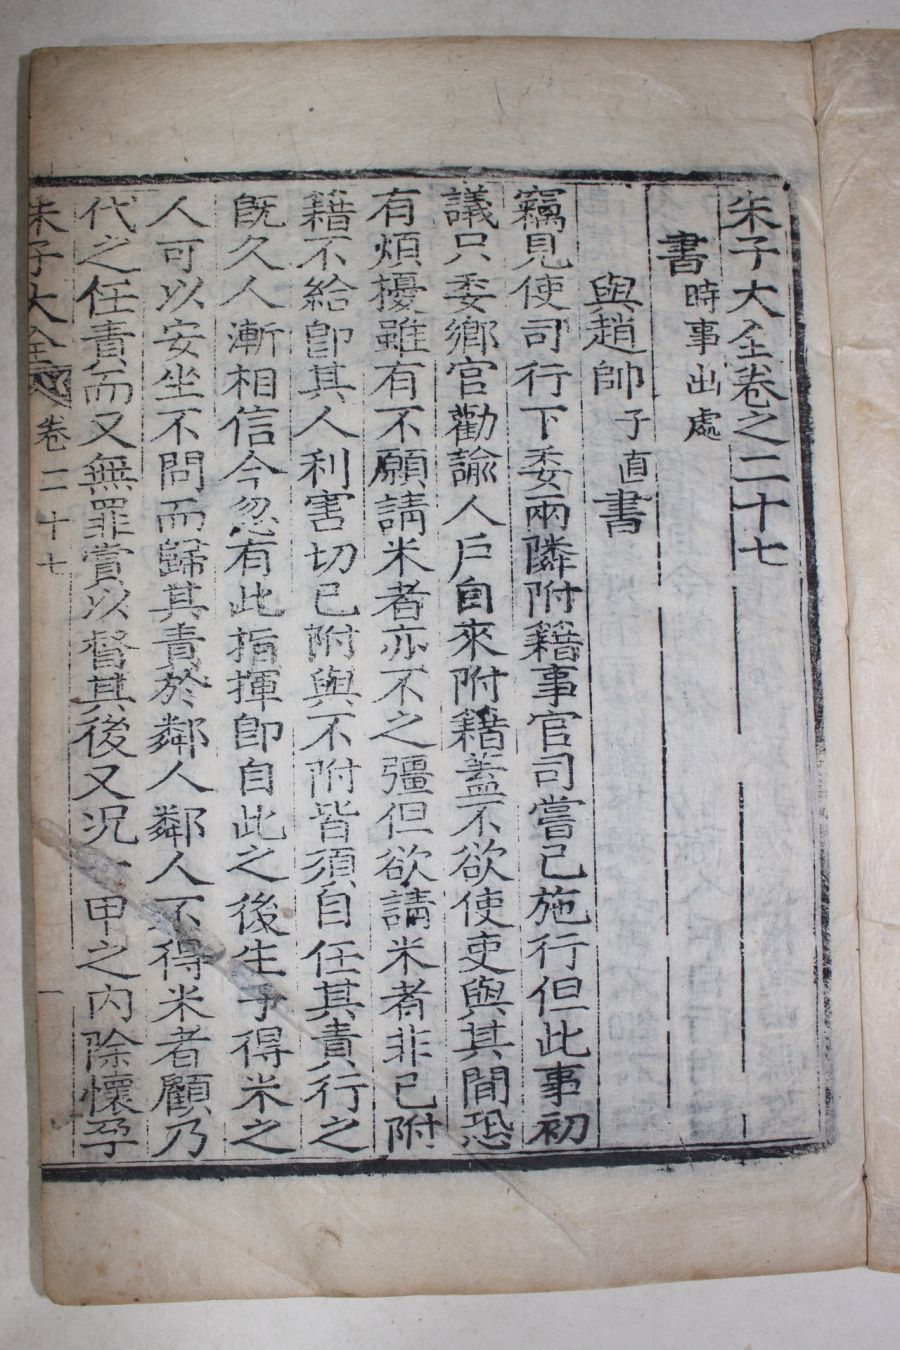 朱子大全卷之二十七
書時事出處
與趙帥子直書
竊見使司行下委兩隣附籍事官司嘗已施行但此事初
議只委鄉官勸諭人戶自來附籍盖不欲使吏與其間恐
有煩擾雖有不願請米者亦不之彊但欲請米者非已附
籍不給即其人利害切已附與不附皆須自任其責行之
旣久人漸相信今忽有此指揮即自此之後生子得米之
人可以安坐不問而歸其責於鄰人鄰人不得米者顧乃
代之任責而又無罪賞以督其後又况一甲之內除懷孕
朱子大全 卷二十七 一